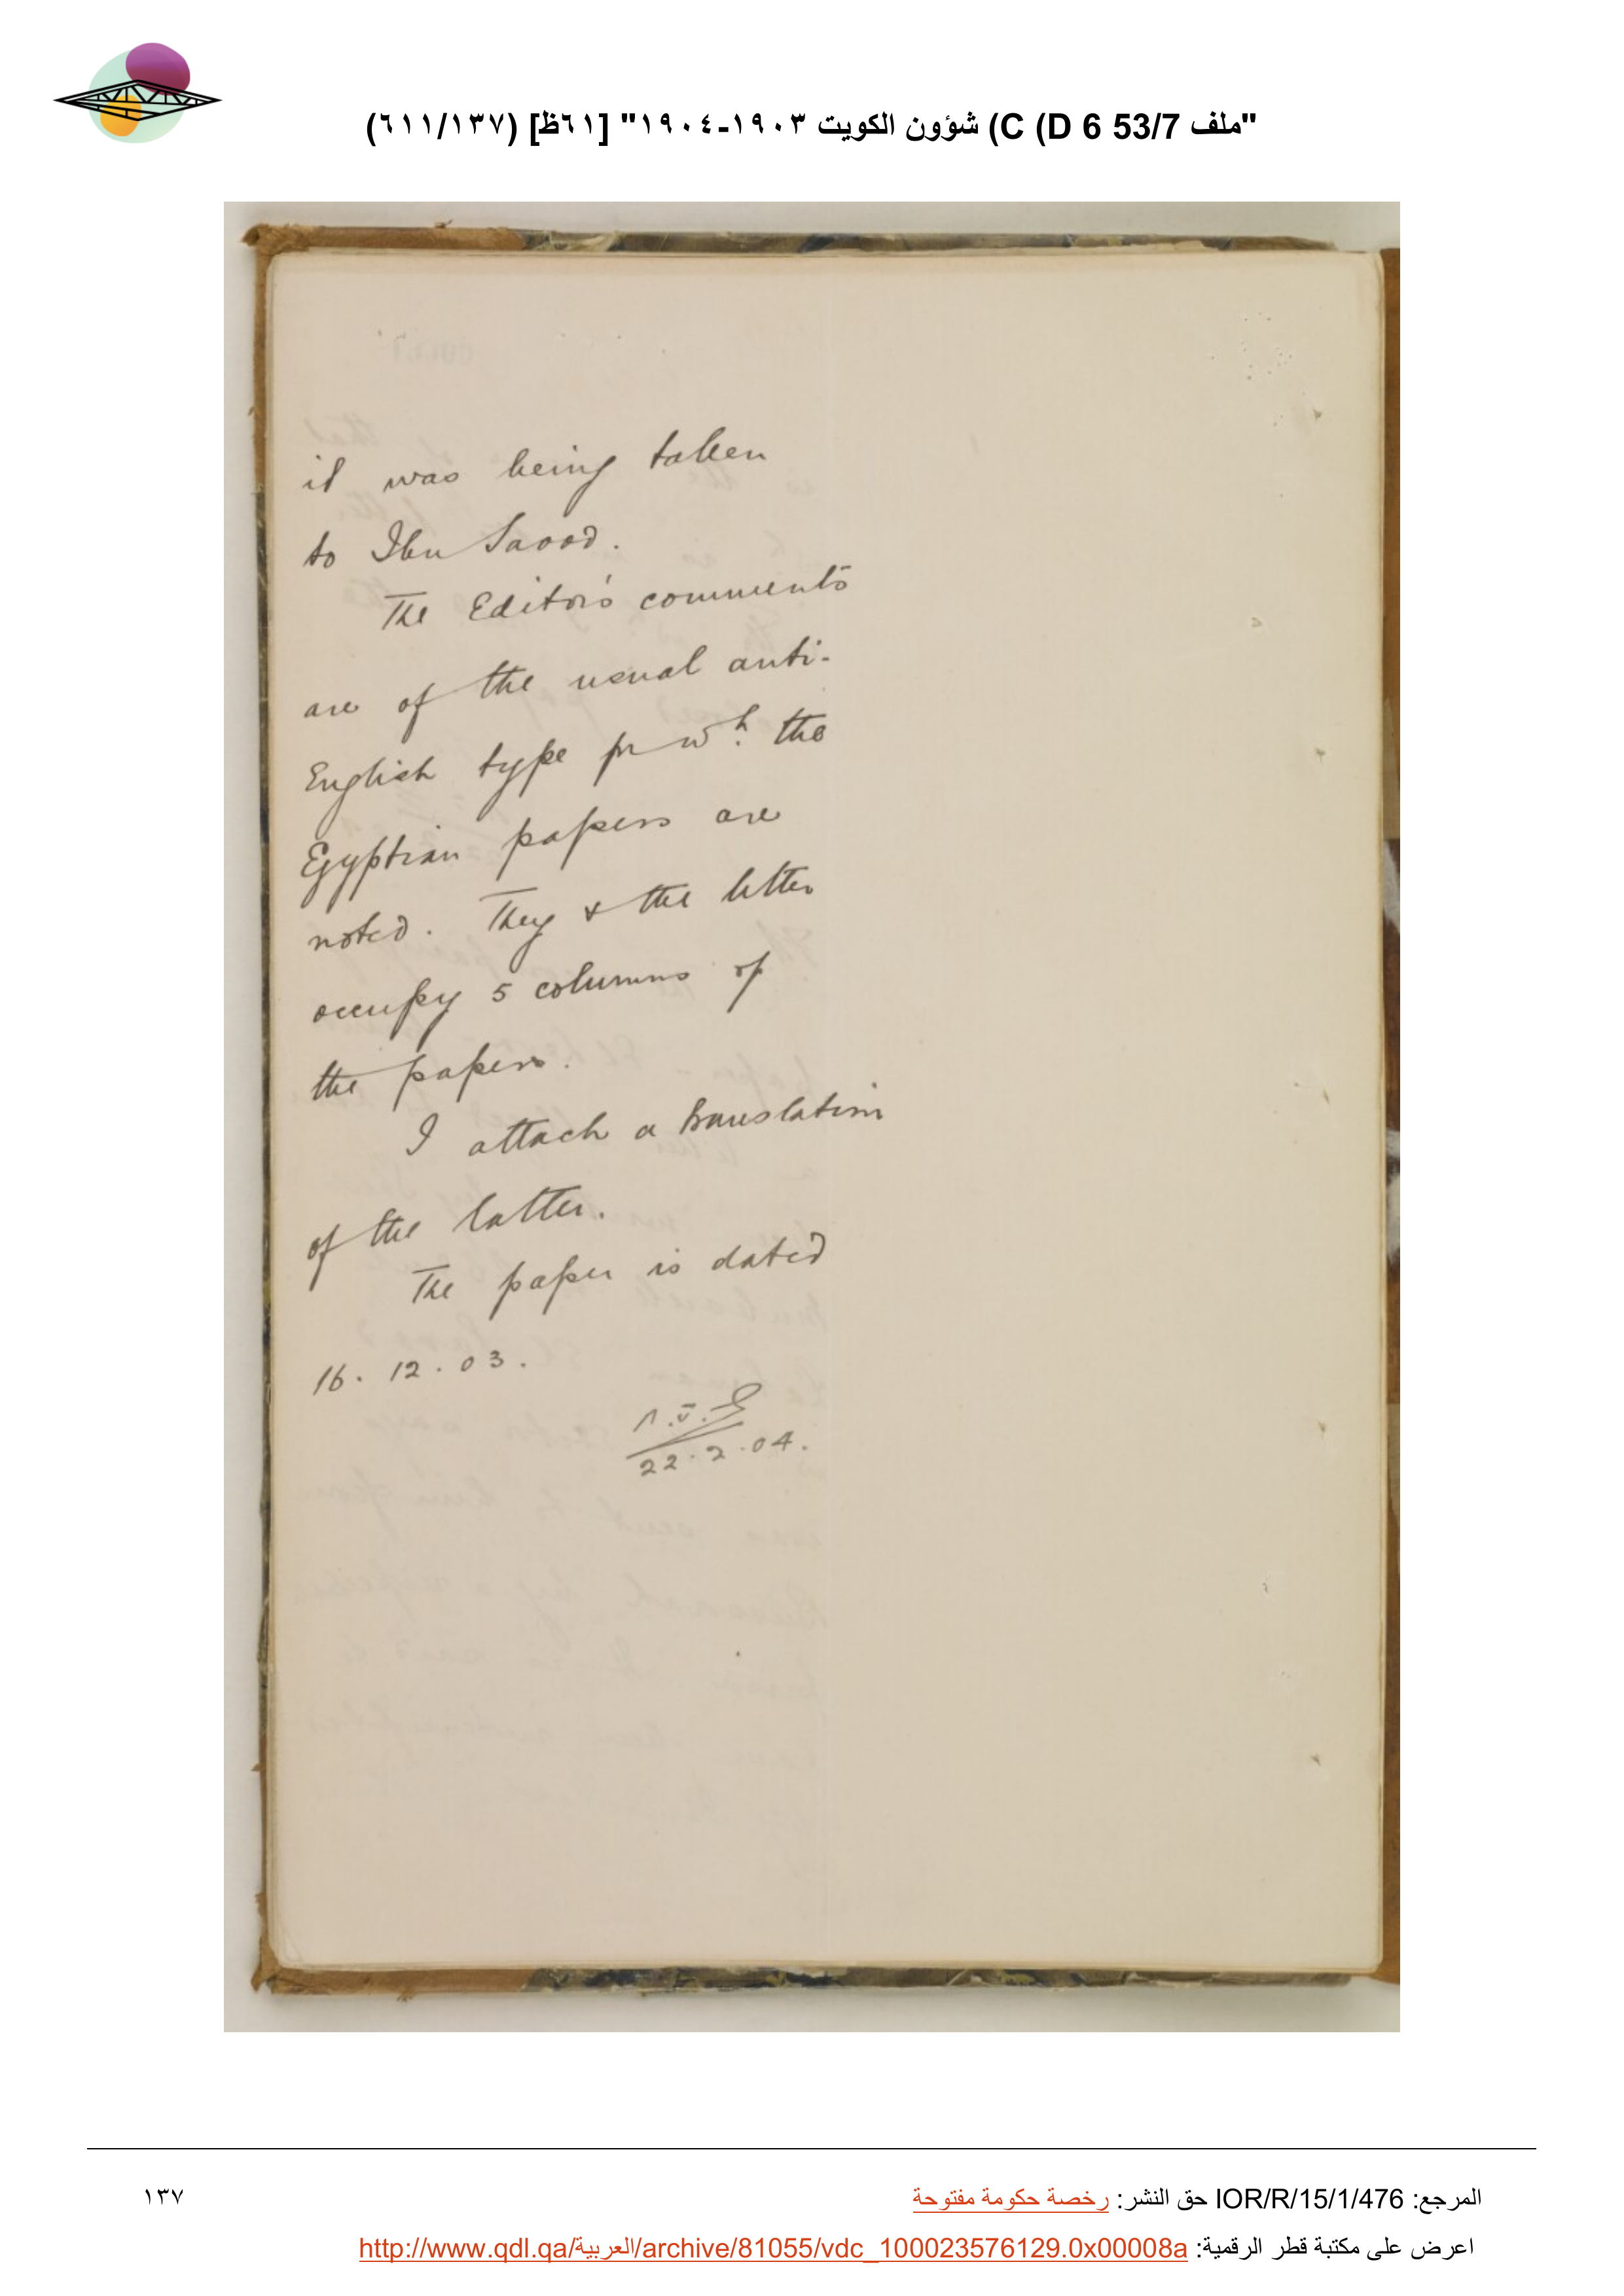 "ملف 53/7 C (D 6) شؤون الكويت ١٩٠٣-١٩٠٤" [٦١ظ] (٦١١/١٣٧)
it was being taken
to Ibn Saood.
The Editor's comments
are of the usual anti-
English type for wh. the
Egyptian papers are
noted. They & the letter
occupy 5 columns of
the papers.
I attach a translation
of the latter.
The paper is dated
16. 12. 03.
22. 2. 04.
المرجع: IOR/R/15/1/476 حق النشر: رخصة حكومة مفتوحة
١٣٧
اعرض على مكتبة قطر الرقمية: http://www.qdl.qa/العربية/archive/81055/vdc_100023576129.0x00008a